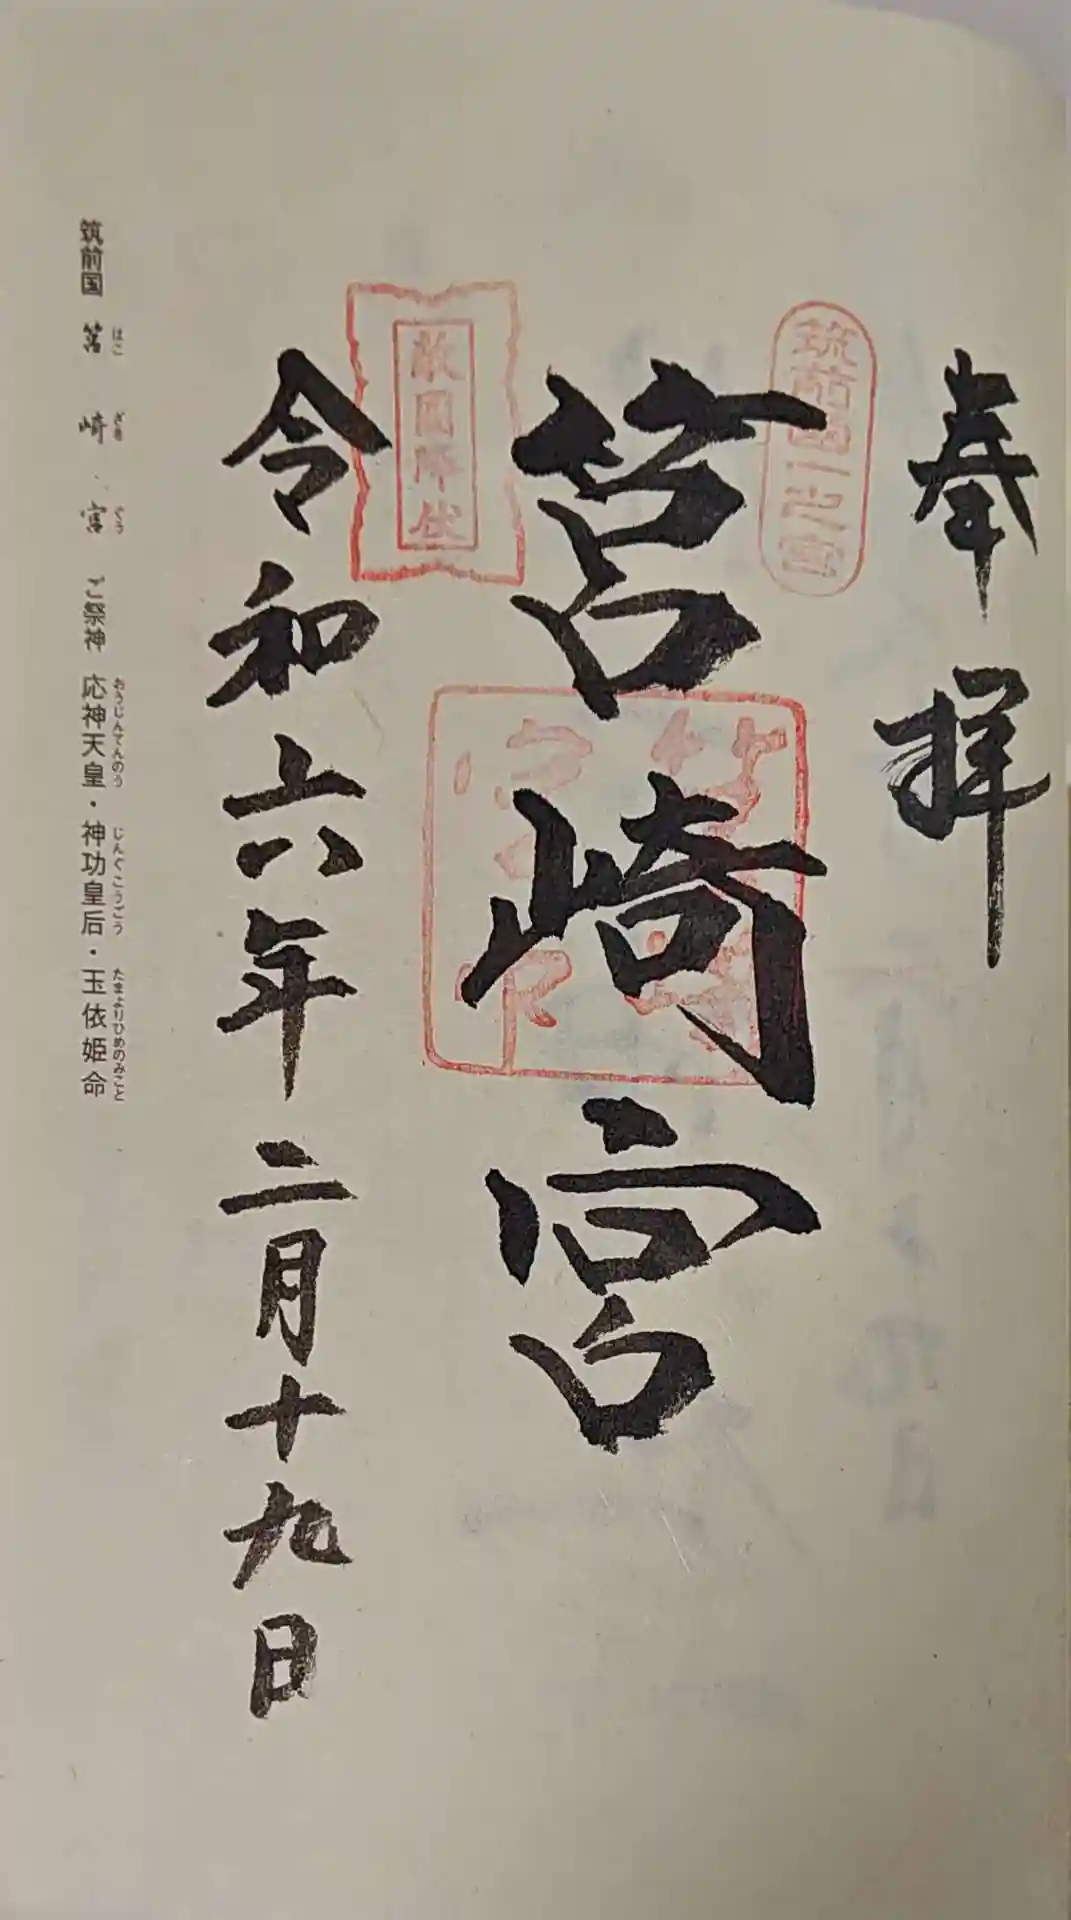 奉拝
筑前國一之宮
筥崎宮
敵國降伏
令和六年二月十九日
筑前国 筥崎宮 ご祭神 応神天皇・神功皇后・玉依姫命
はこ ざき ぐう おうじんてんのう じんぐこうごう たまよりひめのみこと